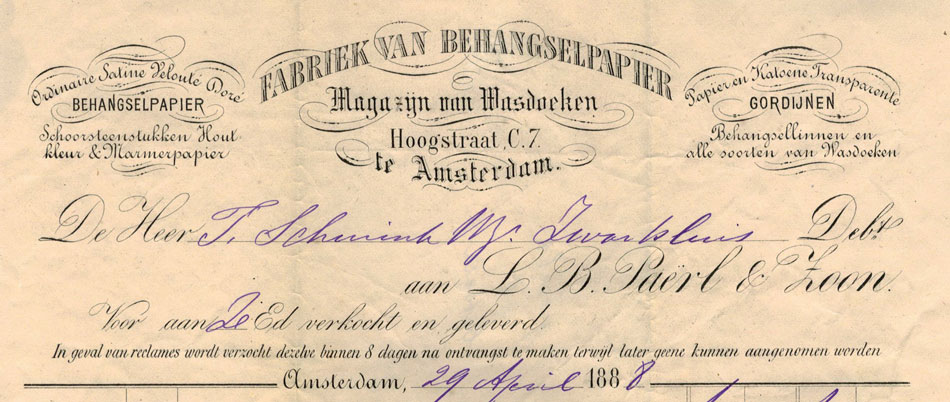 Ordinaire Satine Velouté Doré
BEHANGSELPAPIER
Schoorsteenstukken Hout
kleur & Marmerpapier
FABRIEK VAN BEHANGSELPAPIER
Magazijn van Wasdoeken
Hoogstraat, C. 7.
te Amsterdam.
Papier en Katoene Transparente
GORDIJNEN
Behangsellinnen en
alle soorten van Wasdoeken
De Heer T. Schurink Debt
aan L. B. Paërl & Zoon.
Voor aan Ed verkocht en geleverd.
In geval van reclames wordt verzocht dezelve binnen 8 dagen na ontvangst te maken terwijl later geene kunnen aangenomen worden
Amsterdam, 29 April 1888